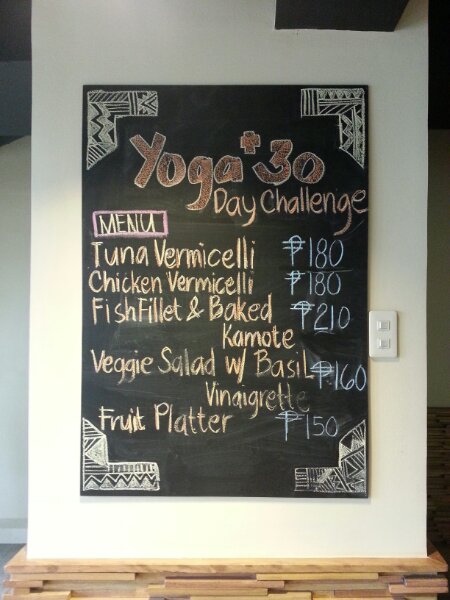 Yoga+ 30
Day Challenge
MENU
Tuna Vermicelli ₱180
Chicken Vermicelli ₱180
Fish Fillet & Baked ₱210
Kamote
Veggie Salad w/ Basil ₱160
Vinaigrette
Fruit Platter ₱150